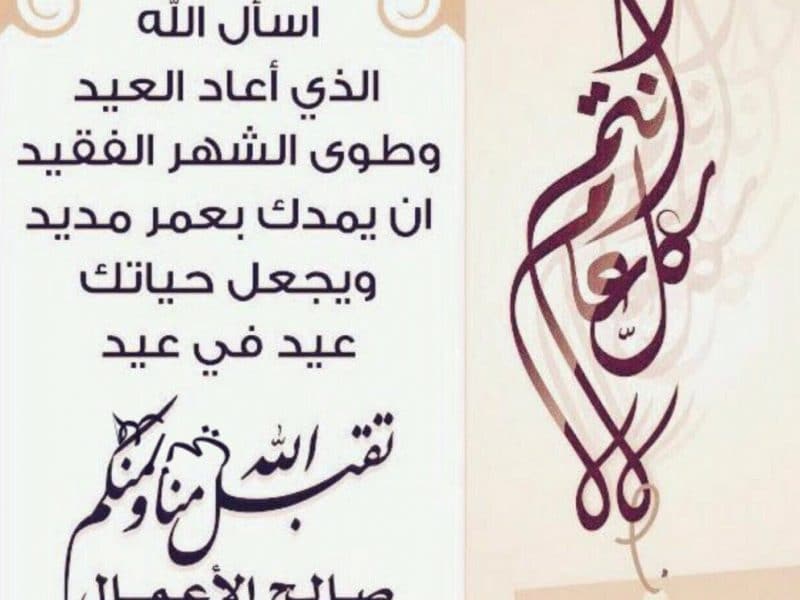 اسأل الله
الذي أعاد العيد
وطوى الشهر الفقيد
ان يمدك بعمر مديد
ويجعل حياتك
عيد في عيد
تقبل الله منا ومنكم
صالح الأعمال
كل عام وأنتم